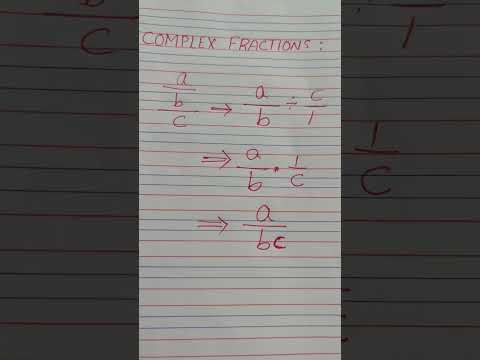 COMPLEX FRACTIONS :
a/b/c → a/b ÷ c/1
⇒ a/b · 1/c
⇒ a/bc